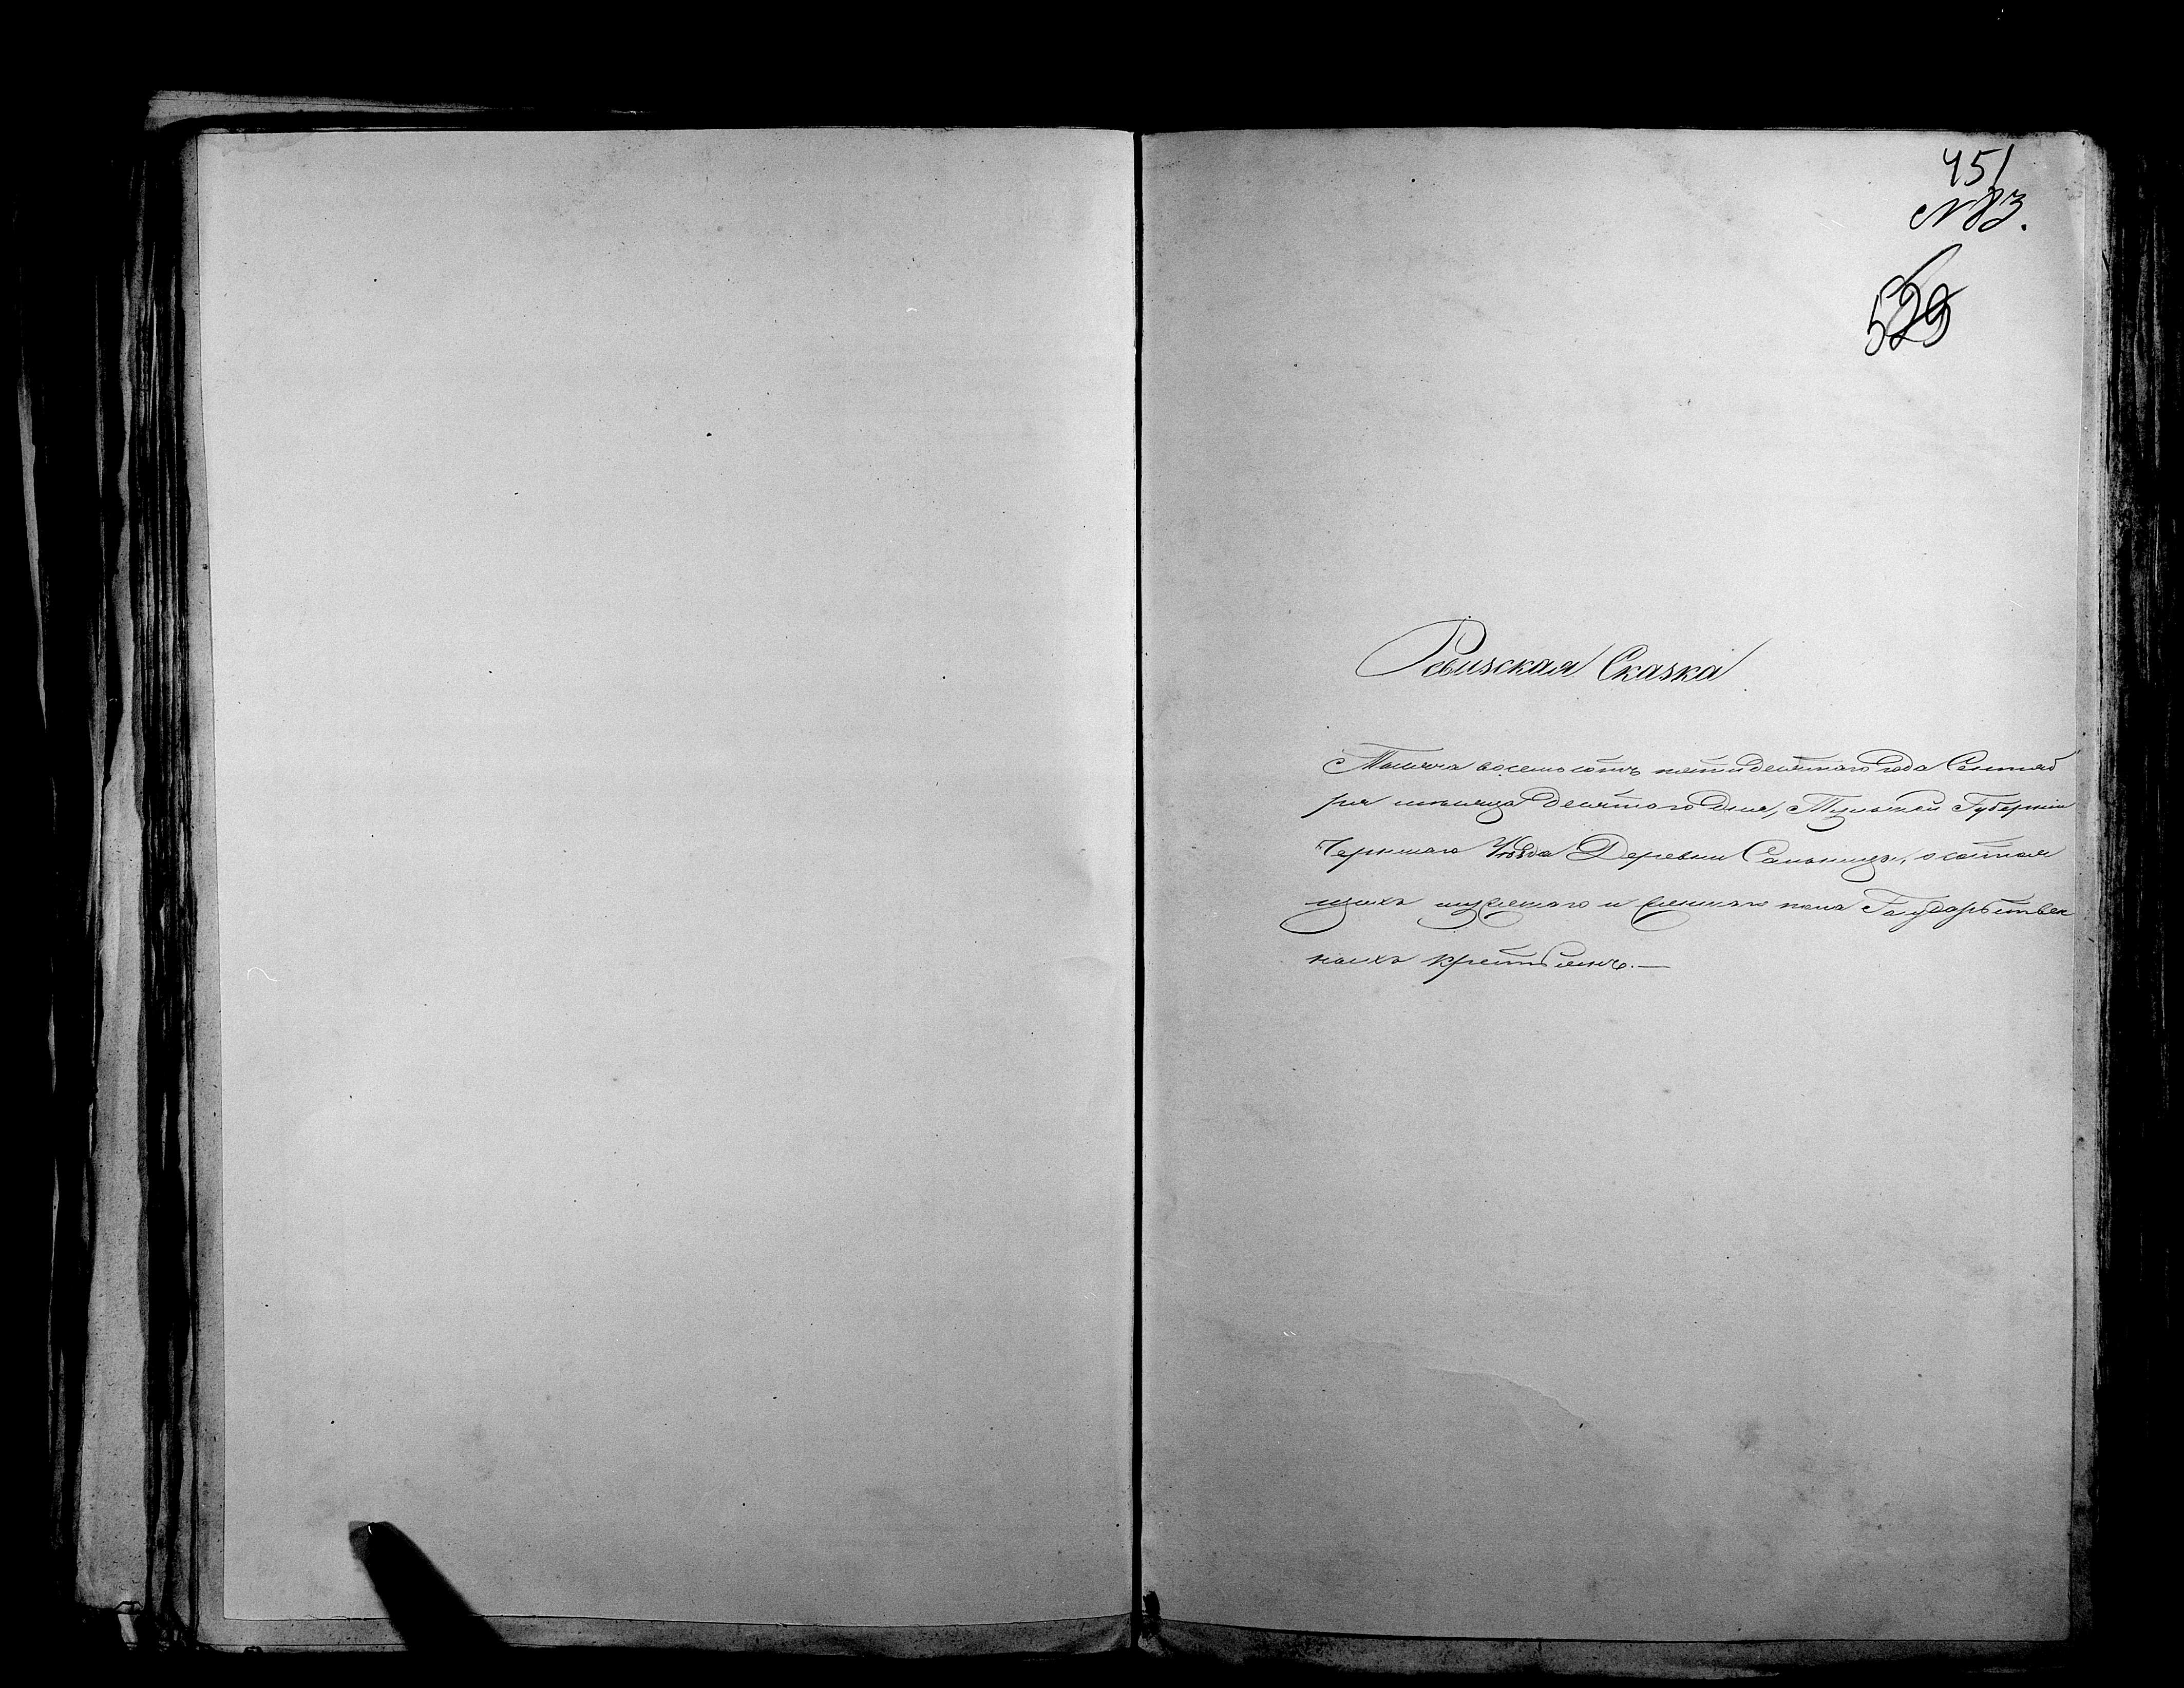 451
№ 83.
529
Ревизская Сказка
Тысяча восемь сотъ пятидесятаго года Сентяб
ря месяца десятаго дня, Тульской Губернiи
Чернскаго Уѣзда Деревни Сальницы, о состоя
щихъ мужескаго и женскаго пола Государствен
ныхъ крестьянъ. —